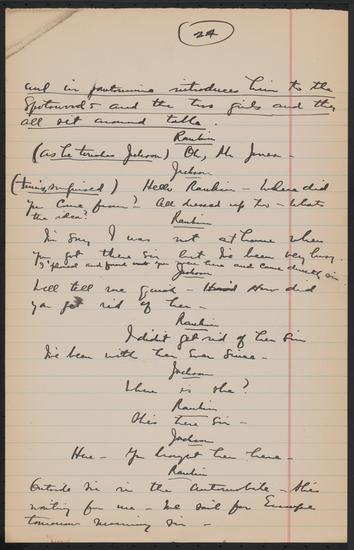 24
and in pantomime introduces him to the
Spotswoods and the two girls and they
all sit around table.
Rankin
(as he touches Jackson) Oh, Mr Jones -
Jackson
(turns, surprised) Hello Rankin - Where did
you come from? All dressed up too - what's
the idea?
Rankin
I'm sorry I was not at home when
you got there sir but I've been very busy.
I phoned and found out you were here and came directly over
Jackson
Well tell me quick - How did
you get rid of her -
Rankin
I didn't get rid of her Sir
I've been with her ever since -
Jackson
Where is she?
Rankin
She's here Sir -
Jackson
Here - You brought her here -
Rankin
Outside sir in the automobile - She's
waiting for me - We sail for Europe
tomorrow morning sir -